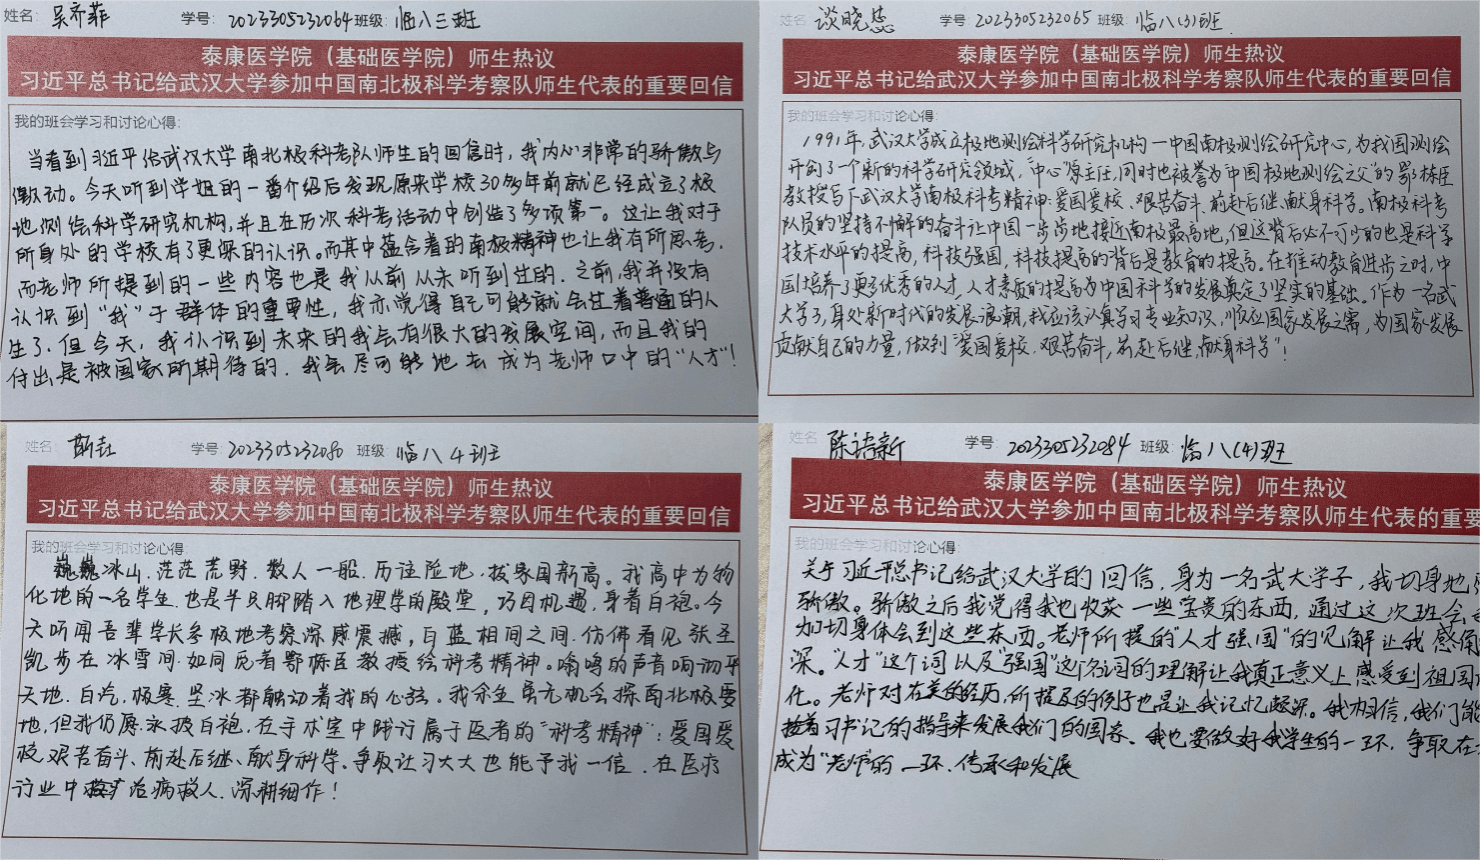 姓名: 吴齐菲 学号: 2023305232064 班级: 临八三班
泰康医学院（基础医学院）师生热议
习近平总书记给武汉大学参加中国南北极科学考察队师生代表的重要回信
我的班会学习和讨论心得:
当看到习近平给武汉大学南北极科考队师生的回信时，我内心非常的骄傲与
激动。今天听到学姐的一番介绍后发现原来学校30多年前就已经成立了极
地测绘科学研究机构，并且在历次科考活动中创造了多项第一。这让我对于
所身处的学校有了更深的认识。而其中蕴含着的南极精神也让我有所思考，
而老师所提到的一些内容也是我从前从未听到过的。之前，我并没有
认识到“我”于群体的重要性，我亦觉得自己可能就会过着普通的人
生了，但今天，我认识到未来的我会有很大的发展空间，而且我的
付出是被国家所期待的，我会尽可能地去成为老师口中的“人才”！
姓名 谈晓蕊 学号 2023305232065 班级: 临八(3)班
泰康医学院（基础医学院）师生热议
习近平总书记给武汉大学参加中国南北极科学考察队师生代表的重要回信
我的班会学习和讨论心得:
1991年，武汉大学成立极地测绘科学研究机构—中国南极测绘研究中心，为我国测绘
开创了一个新的科学研究领域，“中心”原主任，同时也被誉为“中国极地测绘之父”的鄂栋臣
教授写下武汉大学南极科考精神:爱国爱校、艰苦奋斗、前赴后继、献身科学。南极科考
队员的坚持不懈的奋斗让中国一步步地接近南极最高地，但这背后必不可少的也是科学
技术水平的提高，科技强国，科技提高的背后是教育的提高。在推动教育进步之时，中
国培养了更多优秀的人才，人才素质的提高为中国科学的发展奠定了坚实的基础。作为一名武
大学子，身处新时代的发展浪潮，我应该认真学习专业知识，顺应国家发展之需，为国家发展
贡献自己的力量，做到“爱国爱校、艰苦奋斗，前赴后继，献身科学”！
姓名 靳垚 学号 2023305232080 班级: 临八4班
泰康医学院（基础医学院）师生热议
习近平总书记给武汉大学参加中国南北极科学考察队师生代表的重要回信
我的班会学习和讨论心得:
巍巍冰山，茫茫荒野，数人一船，历注险地，拔象国新高。我高中为物
化地的一名学生，也是半只脚踏入地理学的殿堂，巧因机遇，身着白袍。今
天听闻吾辈学长参极地考察深感震撼，白蓝相间之间，仿佛看见张圣
凯步在冰雪间，如同见着鄂栋臣教授绘科考精神。嗡鸣的声音响彻乎
天地，白汽，极寒，坚冰都触动着我的心弦。我余生虽无机会探南北极要
地，但我仍愿永披白袍，在手术室中践行属于医者的“科考精神”：爱国爱
校，艰苦奋斗、前赴后继、献身科学。争取让习大大也能予我一信，在医疗
行业中 治病救人，深耕细作！
姓名 陈诗新 学号 2023305232084 班级: 临八(4)班
泰康医学院（基础医学院）师生热议
习近平总书记给武汉大学参加中国南北极科学考察队师生代表的重要
我的班会学习和讨论心得:
关于习近平总书记给武汉大学的回信，身为一名武大学子，我切身地
骄傲。骄傲之后我觉得我也收获一些宝贵的东西，通过这次班会
加切身体会到这些东西。老师所提的“人才强国”的见解让我感悟
深。“人才”这个词以及“强国”这个名词的理解让我真正意义上感受到祖国
化。老师对在美的经历，所提及的例子也是让我记忆颇深。我相信，我们能
按着习书记的指导来发展我们的国家。我也要做好我学生的一环，争取在
成为“老师”的一环，传承和发展